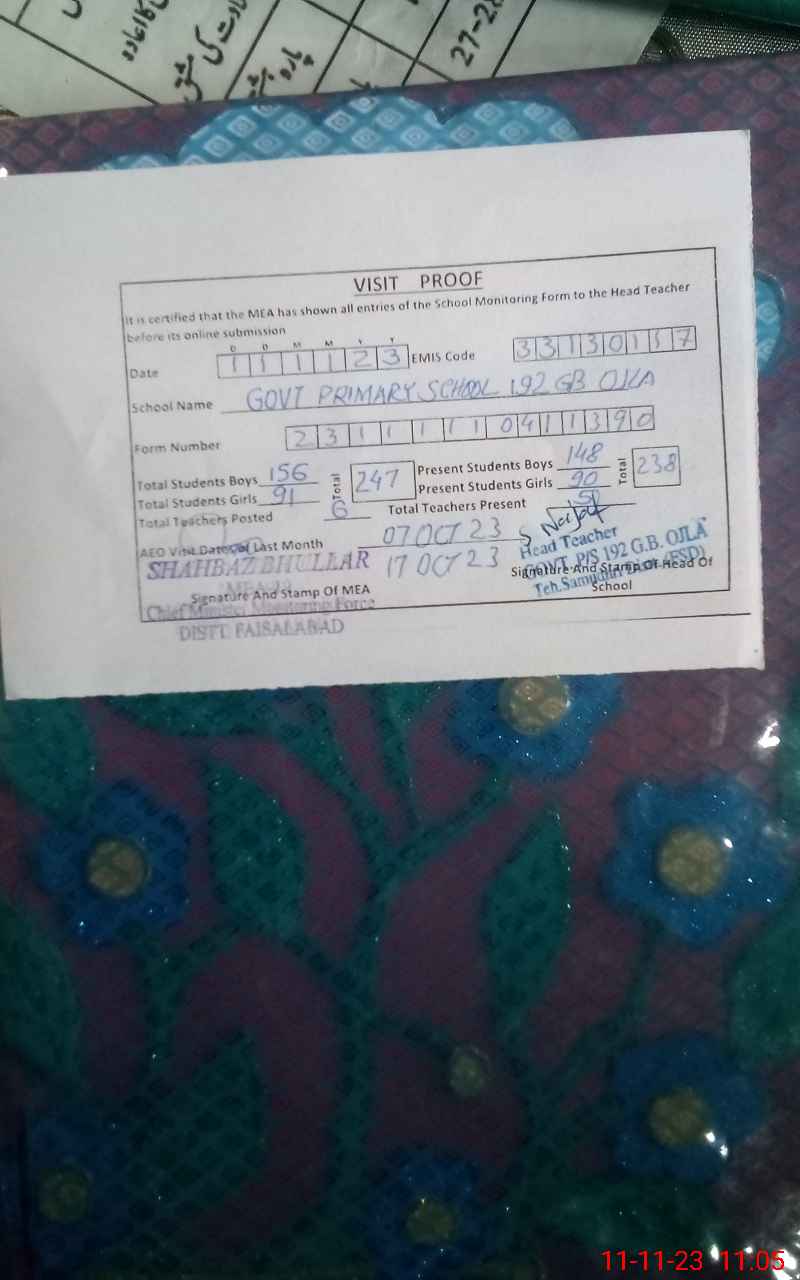 27-28
VISIT PROOF
It is certified that the MEA has shown all entries of the School Monitoring Form to the Head Teacher
before its online submission
D D M M Y Y
Date 1 1 1 1 2 3 EMIS Code 3 3 1 3 0 1 5 7
School Name GOVT PRIMARY SCHOOL 192 GB OJLA
Form Number 2 3 1 1 1 1 1 0 4 1 1 3 9 0
Total Students Boys 156 Total 247 Present Students Boys 148 Total 238
Total Students Girls 91 Present Students Girls 90
Total Teachers Posted 6 Total Teachers Present
AEO Visit Dates of Last Month 07 OCT 23
17 OCT 23
SHAHBAZ BHULLAR
Signature And Stamp Of MEA
Chief Minister Monitoring Force
DISTT. FAISALABAD
Head Teacher
GOVT. P/S 192 G.B. OJLA
Signature And Stamp Of Head Of
School
11-11-23 11:05